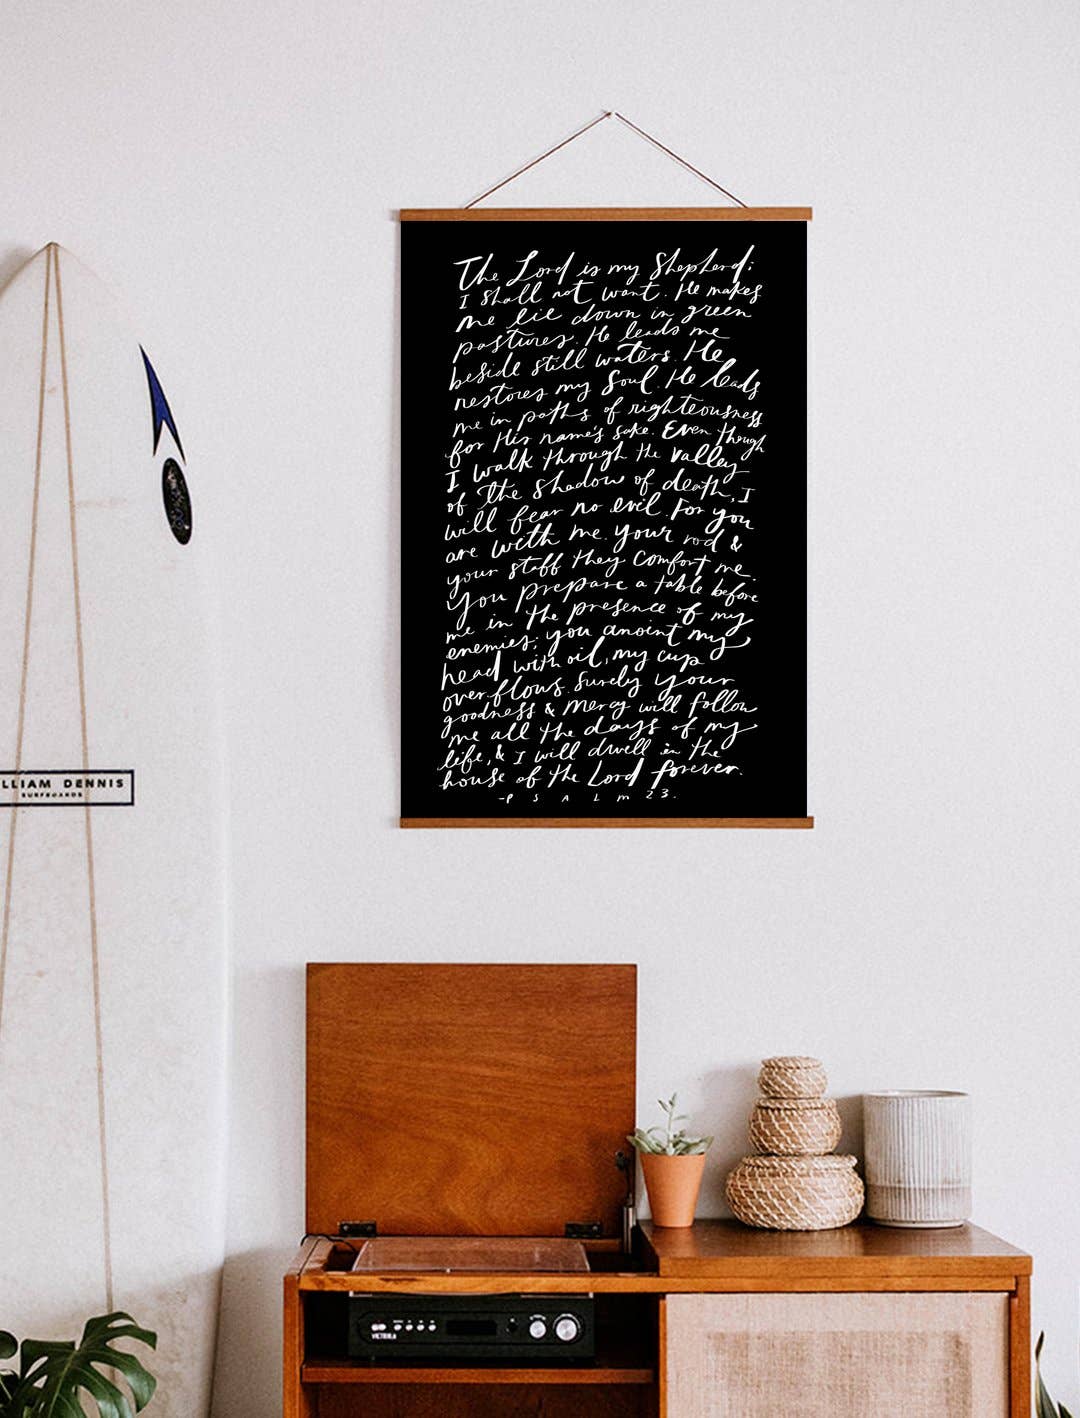 The Lord is my Shepherd;
I shall not want. He makes
me lie down in green
pastures. He leads me
beside still waters. He
restores my soul. He leads
me in paths of righteousness
for His name's sake. Even though
I walk through the valley
of the shadow of death, I
will fear no evil. For you
are with me. your rod &
your staff they comfort me.
You prepare a table before
me in the presence of my
enemies; you anoint my
head with oil, my cup
overflows. Surely your
goodness & mercy will follow
me all the days of my
life, & I will dwell in the
house of the Lord forever.
- PSALM 23.
LLIAM DENNIS
SURFBOARDS
VICTROLA